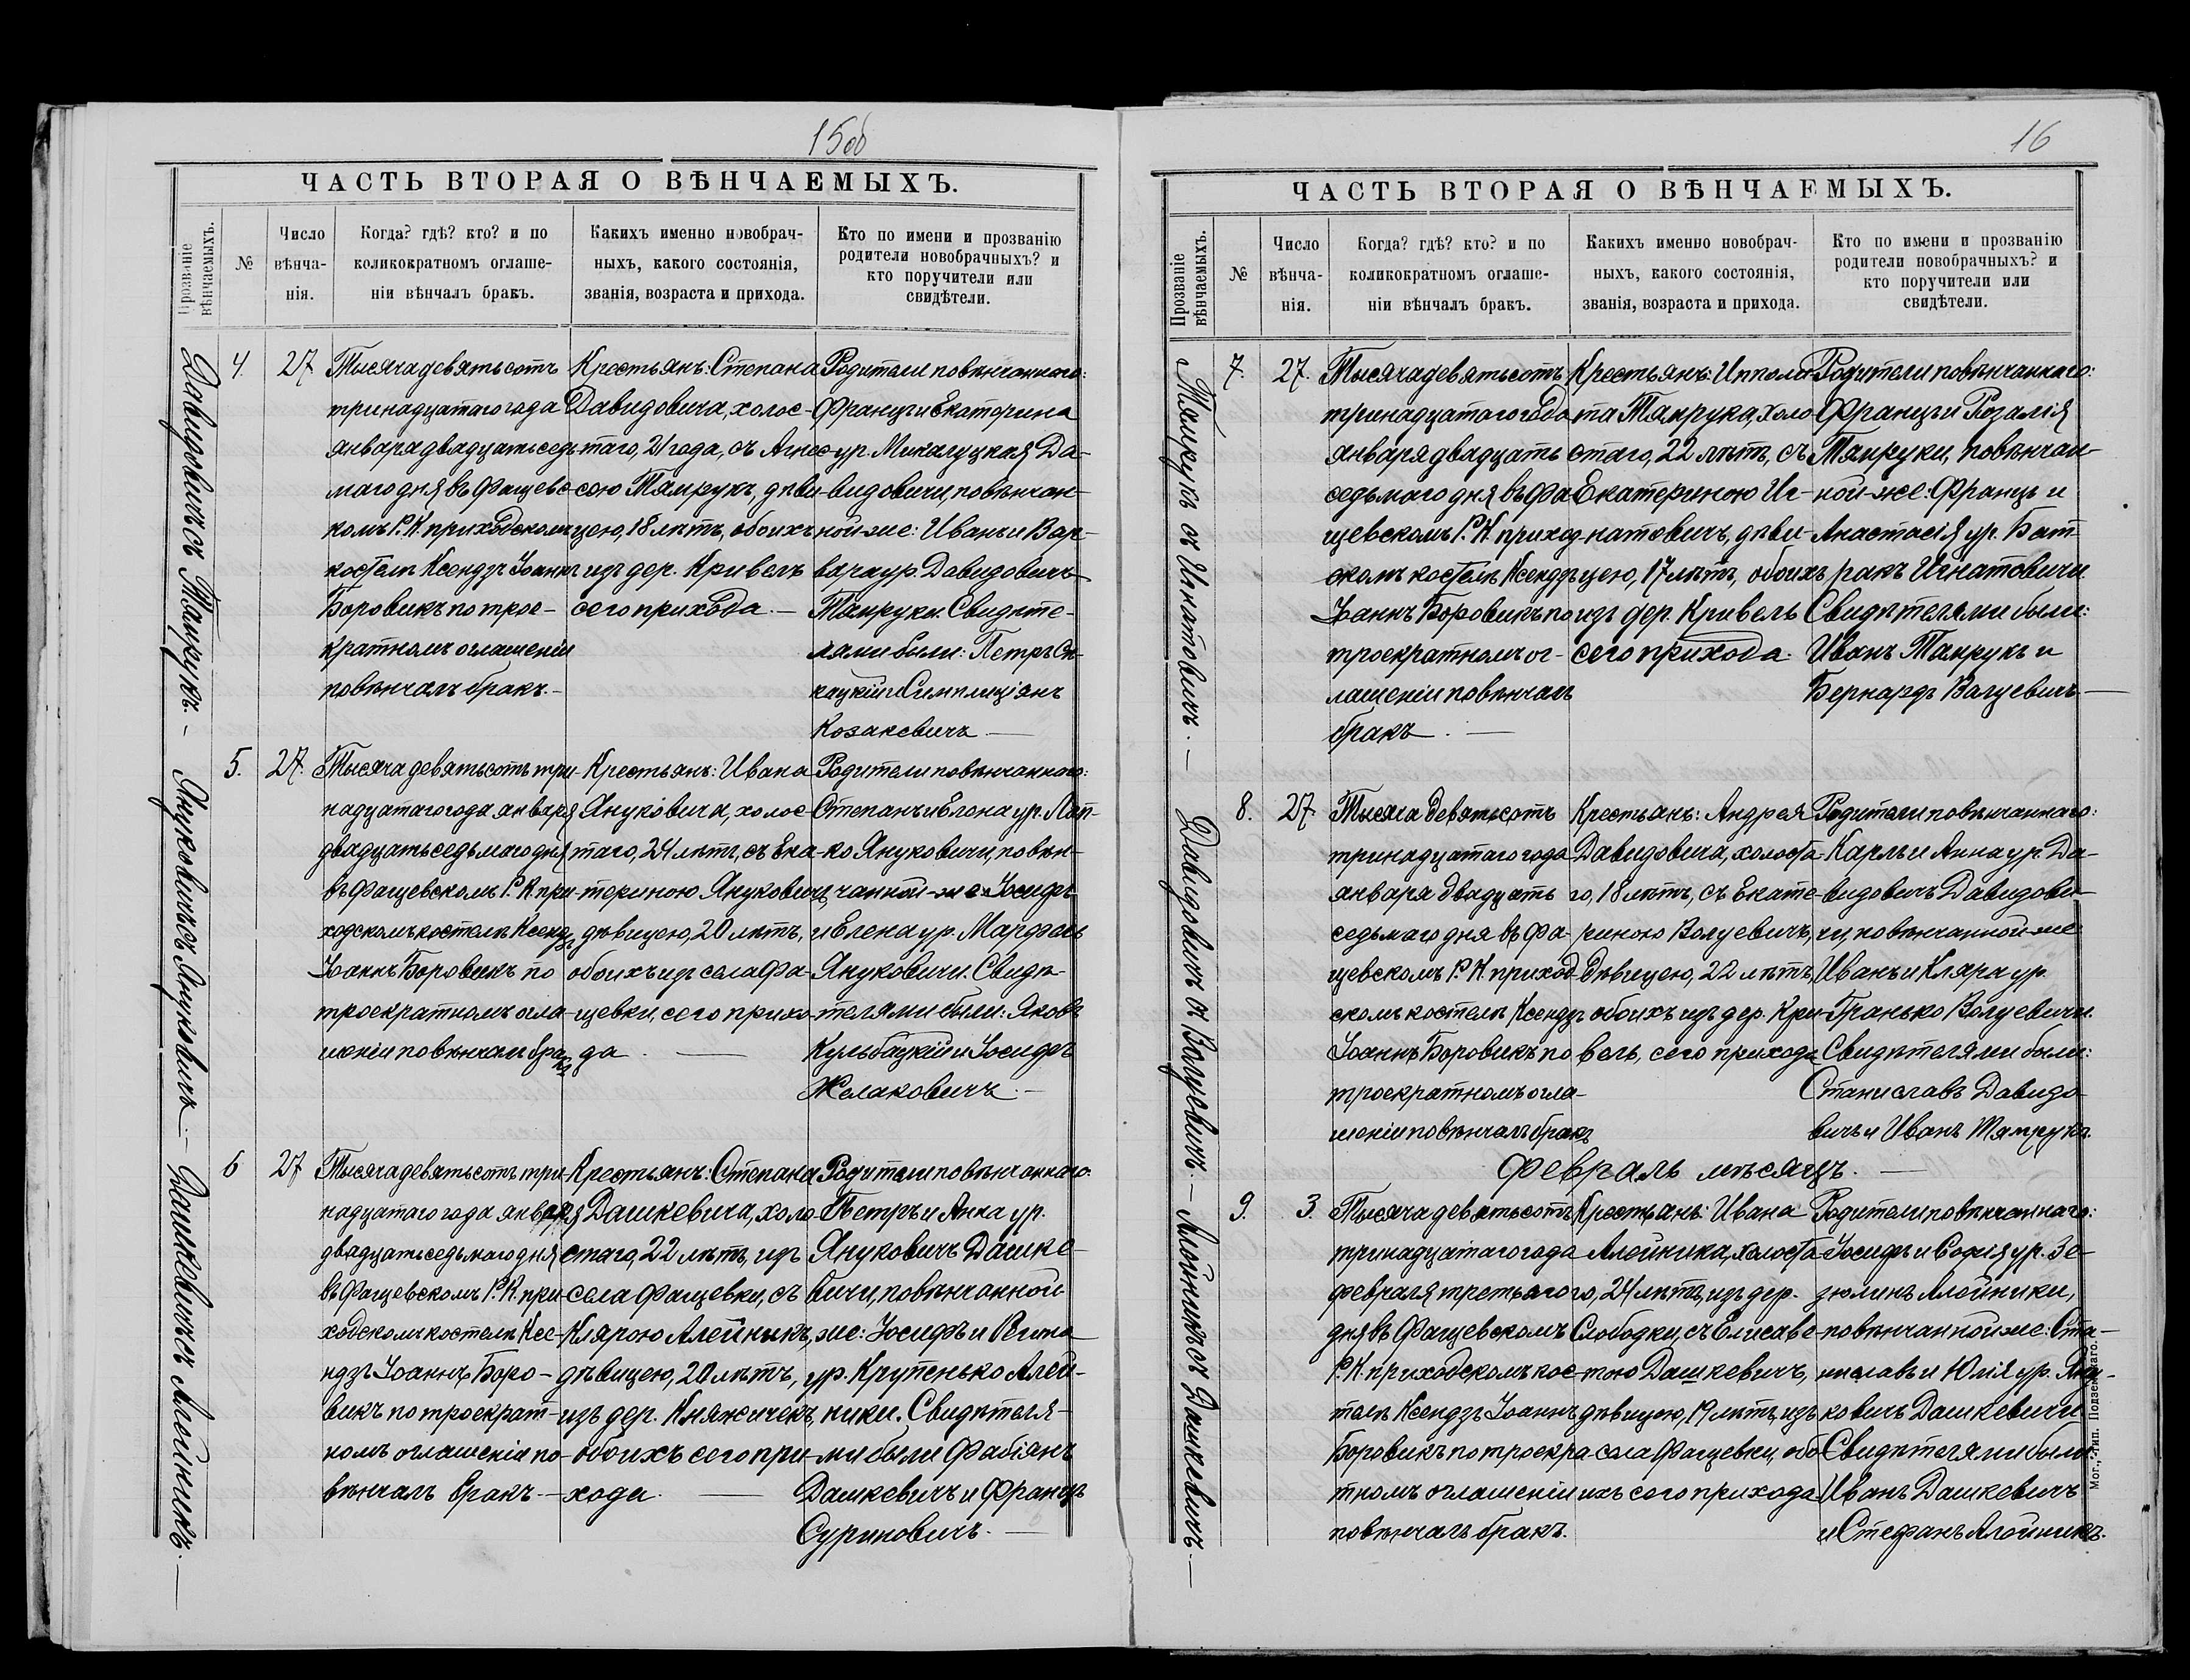 15об
ЧАСТЬ ВТОРАЯ О ВѢНЧАЕМЫХЪ.
Прозваніе
вѣнчаемыхъ.
№
Число
вѣнча-
нія.
Когда? гдѣ? кто? и по
коликократномъ оглаше-
ніи вѣнчалъ бракъ.
Какихъ именно новобрач-
ныхъ, какого состоянія,
званія, возраста и прихода.
Кто по имени и прозванію
родители новобрачныхъ? и
кто поручители или
свидѣтели.
Давидовичъ съ Тамрукъ.-
4.
27
Тысяча девятьсотъ
тринадцатаго года
января двадцать седь-
маго дня въ Фащевс-
комъ Р. К. приходскомъ
костелѣ Ксендзъ Іоаннъ
Боровикъ по трое-
кратномъ оглашеніи
повѣнчалъ бракъ.-
Крестьянъ: Степана
Давидовича, холос-
таго, 21 года, съ Агне-
сою Тамрукъ, дѣви-
цею, 18 лѣтъ, обоихъ
изъ дер. Кривель
сего прихода.-
Родители повѣнчаннаго:
Францъ и Екатерина
ур. Микалуцкая Да-
видовичи, повѣнчан-
ной-же: Иванъ и Вар-
вара ур. Давидовичъ
Тамруки. Свидѣте-
лями были: Петръ
и Симплиціянъ
Козакевичъ
Януковичъ съ Януковичъ.-
5.
27.
Тысяча девятьсотъ три-
надцатаго года января
двадцать седьмаго дня
въ Фащевскомъ Р. К. при-
ходскомъ костелѣ Ксендзъ
Іоаннъ Боровикъ по
троекратномъ огла-
шеніи повѣнчалъ бракъ
Крестьянъ: Ивана
Януковича, холос-
таго, 24 лѣтъ, съ Ека-
териною Януковичъ,
дѣвицею, 20 лѣтъ,
обоихъ изъ села Фа-
щевки, сего прихо-
да.
Родители повѣнчаннаго:
Степанъ и Елена ур. Лап-
ко Януковичи, повѣн-
чанной-же: Іосифъ
и Елена ур. Марфель
Януковичи. Свидѣ-
телями были: Яковъ
Кульбацкій и Іосифъ
Желаковичъ.-
Дашкевичъ съ Алейникъ.-
6
27
Тысяча девятьсотъ три-
надцатаго года января
двадцать седьмаго дня
въ Фащевскомъ Р. К. при-
ходскомъ костелѣ Ксе-
ндзъ Іоаннъ Боро-
викъ по троекрат-
номъ оглашеніи по-
вѣнчалъ бракъ.-
Крестьянъ: Степана
Дашкевича, холо-
стаго, 22 лѣтъ, изъ
села Фащевки, съ
Клярою Алейникъ,
дѣвицею, 20 лѣтъ,
изъ дер. Княжичекъ,
обоихъ сего при-
хода.
Родители повѣнчаннаго:
Петръ и Анна ур.
Януковичъ Дашке-
вичи, повѣнчанной-
же: Іосифъ и Регина
ур. Крупенько Алей-
ники. Свидѣтеля-
ми были Фабіянъ
Дашкевичъ и Францъ
Суриновичъ.
16
ЧАСТЬ ВТОРАЯ О ВѢНЧАЕМЫХЪ.
Прозваніе
вѣнчаемыхъ.
№
Число
вѣнча-
нія.
Когда? гдѣ? кто? и по
коликократномъ оглаше-
ніи вѣнчалъ бракъ.
Какихъ именно новобрач-
ныхъ, какого состоянія,
званія, возраста и прихода.
Кто по имени и прозванію
родители новобрачныхъ? и
кто поручители или
свидѣтели.
Тамрукъ съ Игнатовичъ.-
7.
27.
Тысяча девятьсотъ
тринадцатаго года
января двадцать
седьмаго дня въ Фа-
щевскомъ Р. К. приход-
скомъ костелѣ Ксендзъ
Іоаннъ Боровикъ по
троекратномъ ог-
лашеніи повѣнчалъ
бракъ.
Крестьянъ: Ипполи-
та Тамрука, холо-
стаго, 22 лѣтъ, съ
Екатериною Иг-
натовичъ, дѣви-
цею, 17 лѣтъ, обоихъ
изъ дер. Кривель
сего прихода.
Родители повѣнчаннаго:
Францъ и Розалія
Тамруки, повѣнчан-
ной-же: Францъ и
Анастасія ур. Бат-
ракъ Игнатовичи.
Свидѣтелями были:
Иванъ Тамрукъ и
Бернардъ Валуевичъ
Давидовичъ съ Валуевичъ.-
8.
27.
Тысяча девятьсотъ
тринадцатаго года
января двадцать
седьмаго дня въ Фа-
щевскомъ Р. К. приход-
скомъ костелѣ Ксендзъ
Іоаннъ Боровикъ по
троекратномъ огла-
шеніи повѣнчалъ бракъ
Крестьянъ: Андрея
Давидовича, холоста-
го, 18 лѣтъ, съ Екате-
риною Валуевичъ,
дѣвицею, 22 лѣтъ,
обоихъ изъ дер. Кри-
вель, сего прихода
Родители повѣнчаннаго:
Карлъ и Анна ур. Да-
видовичъ Давидови-
чи, повѣнчанной-же
Иванъ и Кляра ур.
Гранько Валуевичи.
Свидѣтелями были:
Станиславъ Давидо-
вичъ и Иванъ Тамрукъ.
Февраль мѣсяцъ.
Алейникъ съ Дашкевичъ.-
9.
3.
Тысяча девятьсотъ
тринадцатаго года
февраля третьяго
дня въ Фащевскомъ
Р. К. приходскомъ кос-
телѣ Ксендзъ Іоаннъ
Боровикъ по троекра-
тномъ оглашеніи
повѣнчалъ бракъ.
Крестьянъ: Ивана
Алейника, холоста-
го, 24 лѣтъ, изъ дер.
Слободки, съ Елисаве-
тою Дашкевичъ,
дѣвицею, 19 лѣтъ, изъ
села Фащевки, обо-
ихъ сего прихода.
Родители повѣнчаннаго:
Іосифъ и Софія ур. Зе-
зюлинъ Алейники,
повѣнчанной же: Ста-
ниславъ и Юлія ур. Яну-
ковичъ Дашкевичи
Свидѣтелями были
Иванъ Дашкевичъ
и Стефанъ Алейникъ.
Мог., Тип. Подземскаго.